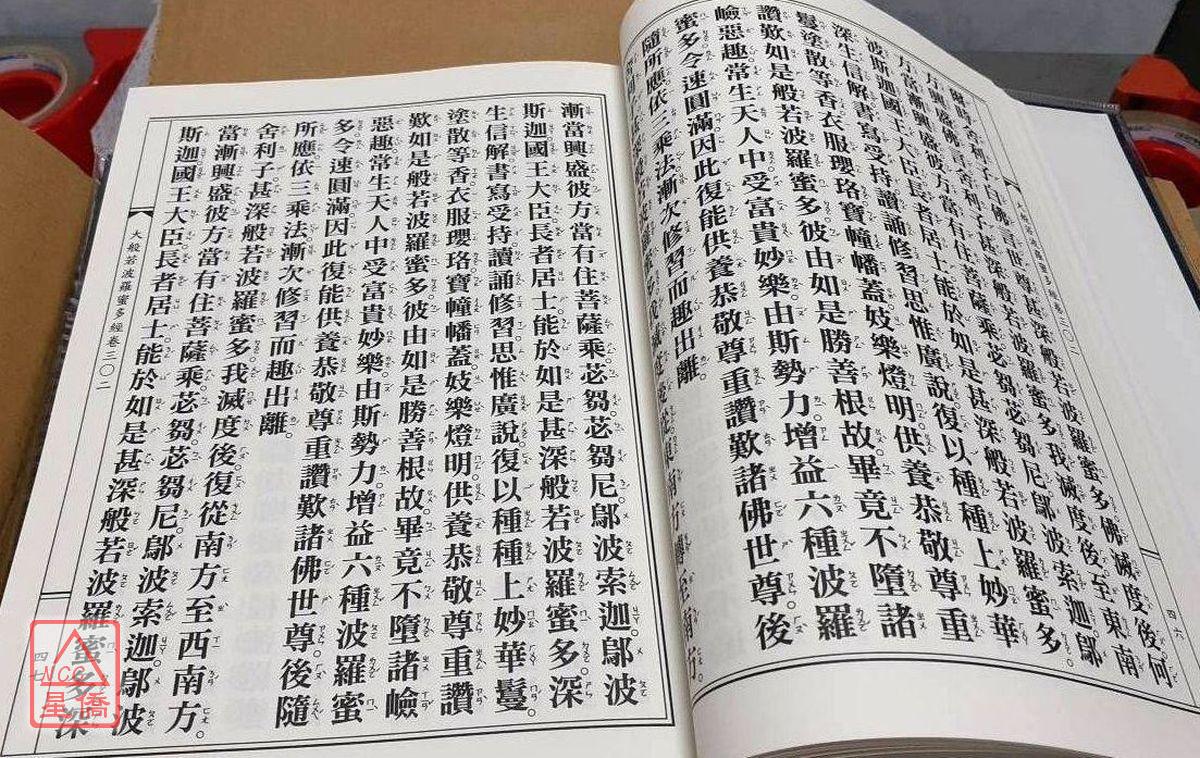 四六
爾時舍利子白佛言世尊甚深般若波羅蜜多佛滅度後何
方興盛佛言舍利子甚深般若波羅蜜多我滅度後至東南
方當漸興盛彼方當有住菩薩乘苾芻苾芻尼鄔波索迦鄔
波斯迦國王大臣長者居士能於如是甚深般若波羅蜜多
深生信解書寫受持讀誦修習思惟廣說復以種種上妙華
鬘塗散等香衣服瓔珞寶幢幡蓋妓樂燈明供養恭敬尊重
讚歎如是般若波羅蜜多彼由如是勝善根故畢竟不墮諸
嶮惡趣常生天人中受富貴妙樂由斯勢力增益六種波羅
蜜多令速圓滿因此復能供養恭敬尊重讚歎諸佛世尊後
隨所應依三乘法漸次修習而趣出離。
從東南方轉至南方。
漸當興盛彼方當有住菩薩乘苾芻苾芻尼。鄔波索迦鄔波
斯迦國王大臣。長者居士。能於如是甚深般若波羅蜜多。深
生信解書寫受持讀誦修習。思惟廣說。復以種種上妙華鬘。
塗散等香衣服瓔珞寶幢幡蓋。妓樂燈明。供養恭敬尊重讚
歎如是般若波羅蜜多。彼由如是勝善根故。畢竟不墮諸嶮
惡趣。常生天人中受富貴妙樂。由斯勢力。增益六種波羅蜜
多令速圓滿。因此復能供養恭敬尊重讚歎諸佛世尊。後隨
所應依三乘法漸次修習而趣出離。
舍利子甚深般若波羅蜜多。我滅度後。復從南方至西南方。
當漸興盛彼方當有住菩薩乘。苾芻。苾芻尼。鄔波索迦。鄔波
斯迦國王大臣。長者居士。能於如是甚深般若波羅蜜多深
大般若波羅蜜多經卷三〇二
四七
NCC
星僑